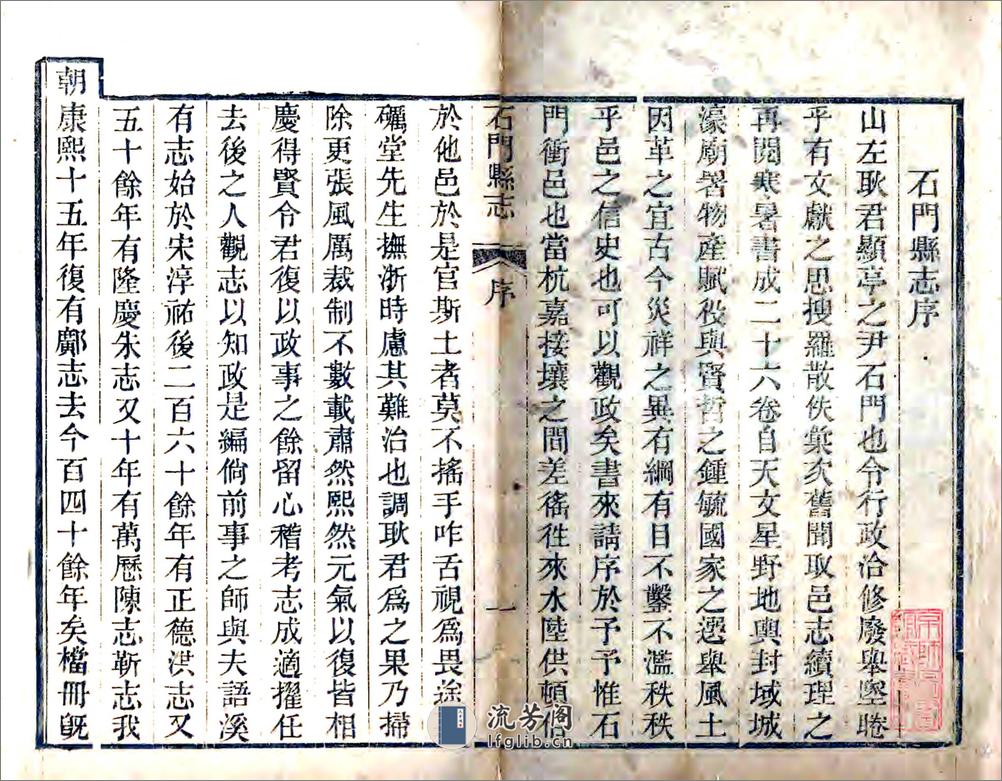 石門縣志序
山左耿君顯亭之尹石門也令行政洽修廢舉墜睠
乎有文獻之思搜羅散佚彙次舊聞取邑志續理之
再閱寒暑書成二十六卷自天文星野地輿封域城
濠廟署物產賦役與賢哲之鍾毓國家之選舉風土
因革之宜古今災祥之異有綱有目不鑿不濫秩秩
乎邑之信史也可以觀政矣書來請序於予予惟石
門衝邑也當杭嘉接壤之間差徭徃來水陸供頓倍
石門縣志 序 一
於他邑於是官斯土者莫不搖手咋舌視為畏途
礪堂先生撫浙時慮其難治也調耿君爲之果乃掃
除更張風厲裁制不數載肅然熙然元氣以復皆相
慶得賢令君復以政事之餘留心稽考志成適擢任
去後之人觀志以知政是編倘前事之師與夫語溪
有志始於宋淳祐後二百六十餘年有正德洪志又
五十餘年有隆慶朱志又十年有萬曆陳志靳志我
朝康熙十五年復有鄺志去今百四十餘年矣檔冊旣
流芳閣
lfglib.cn